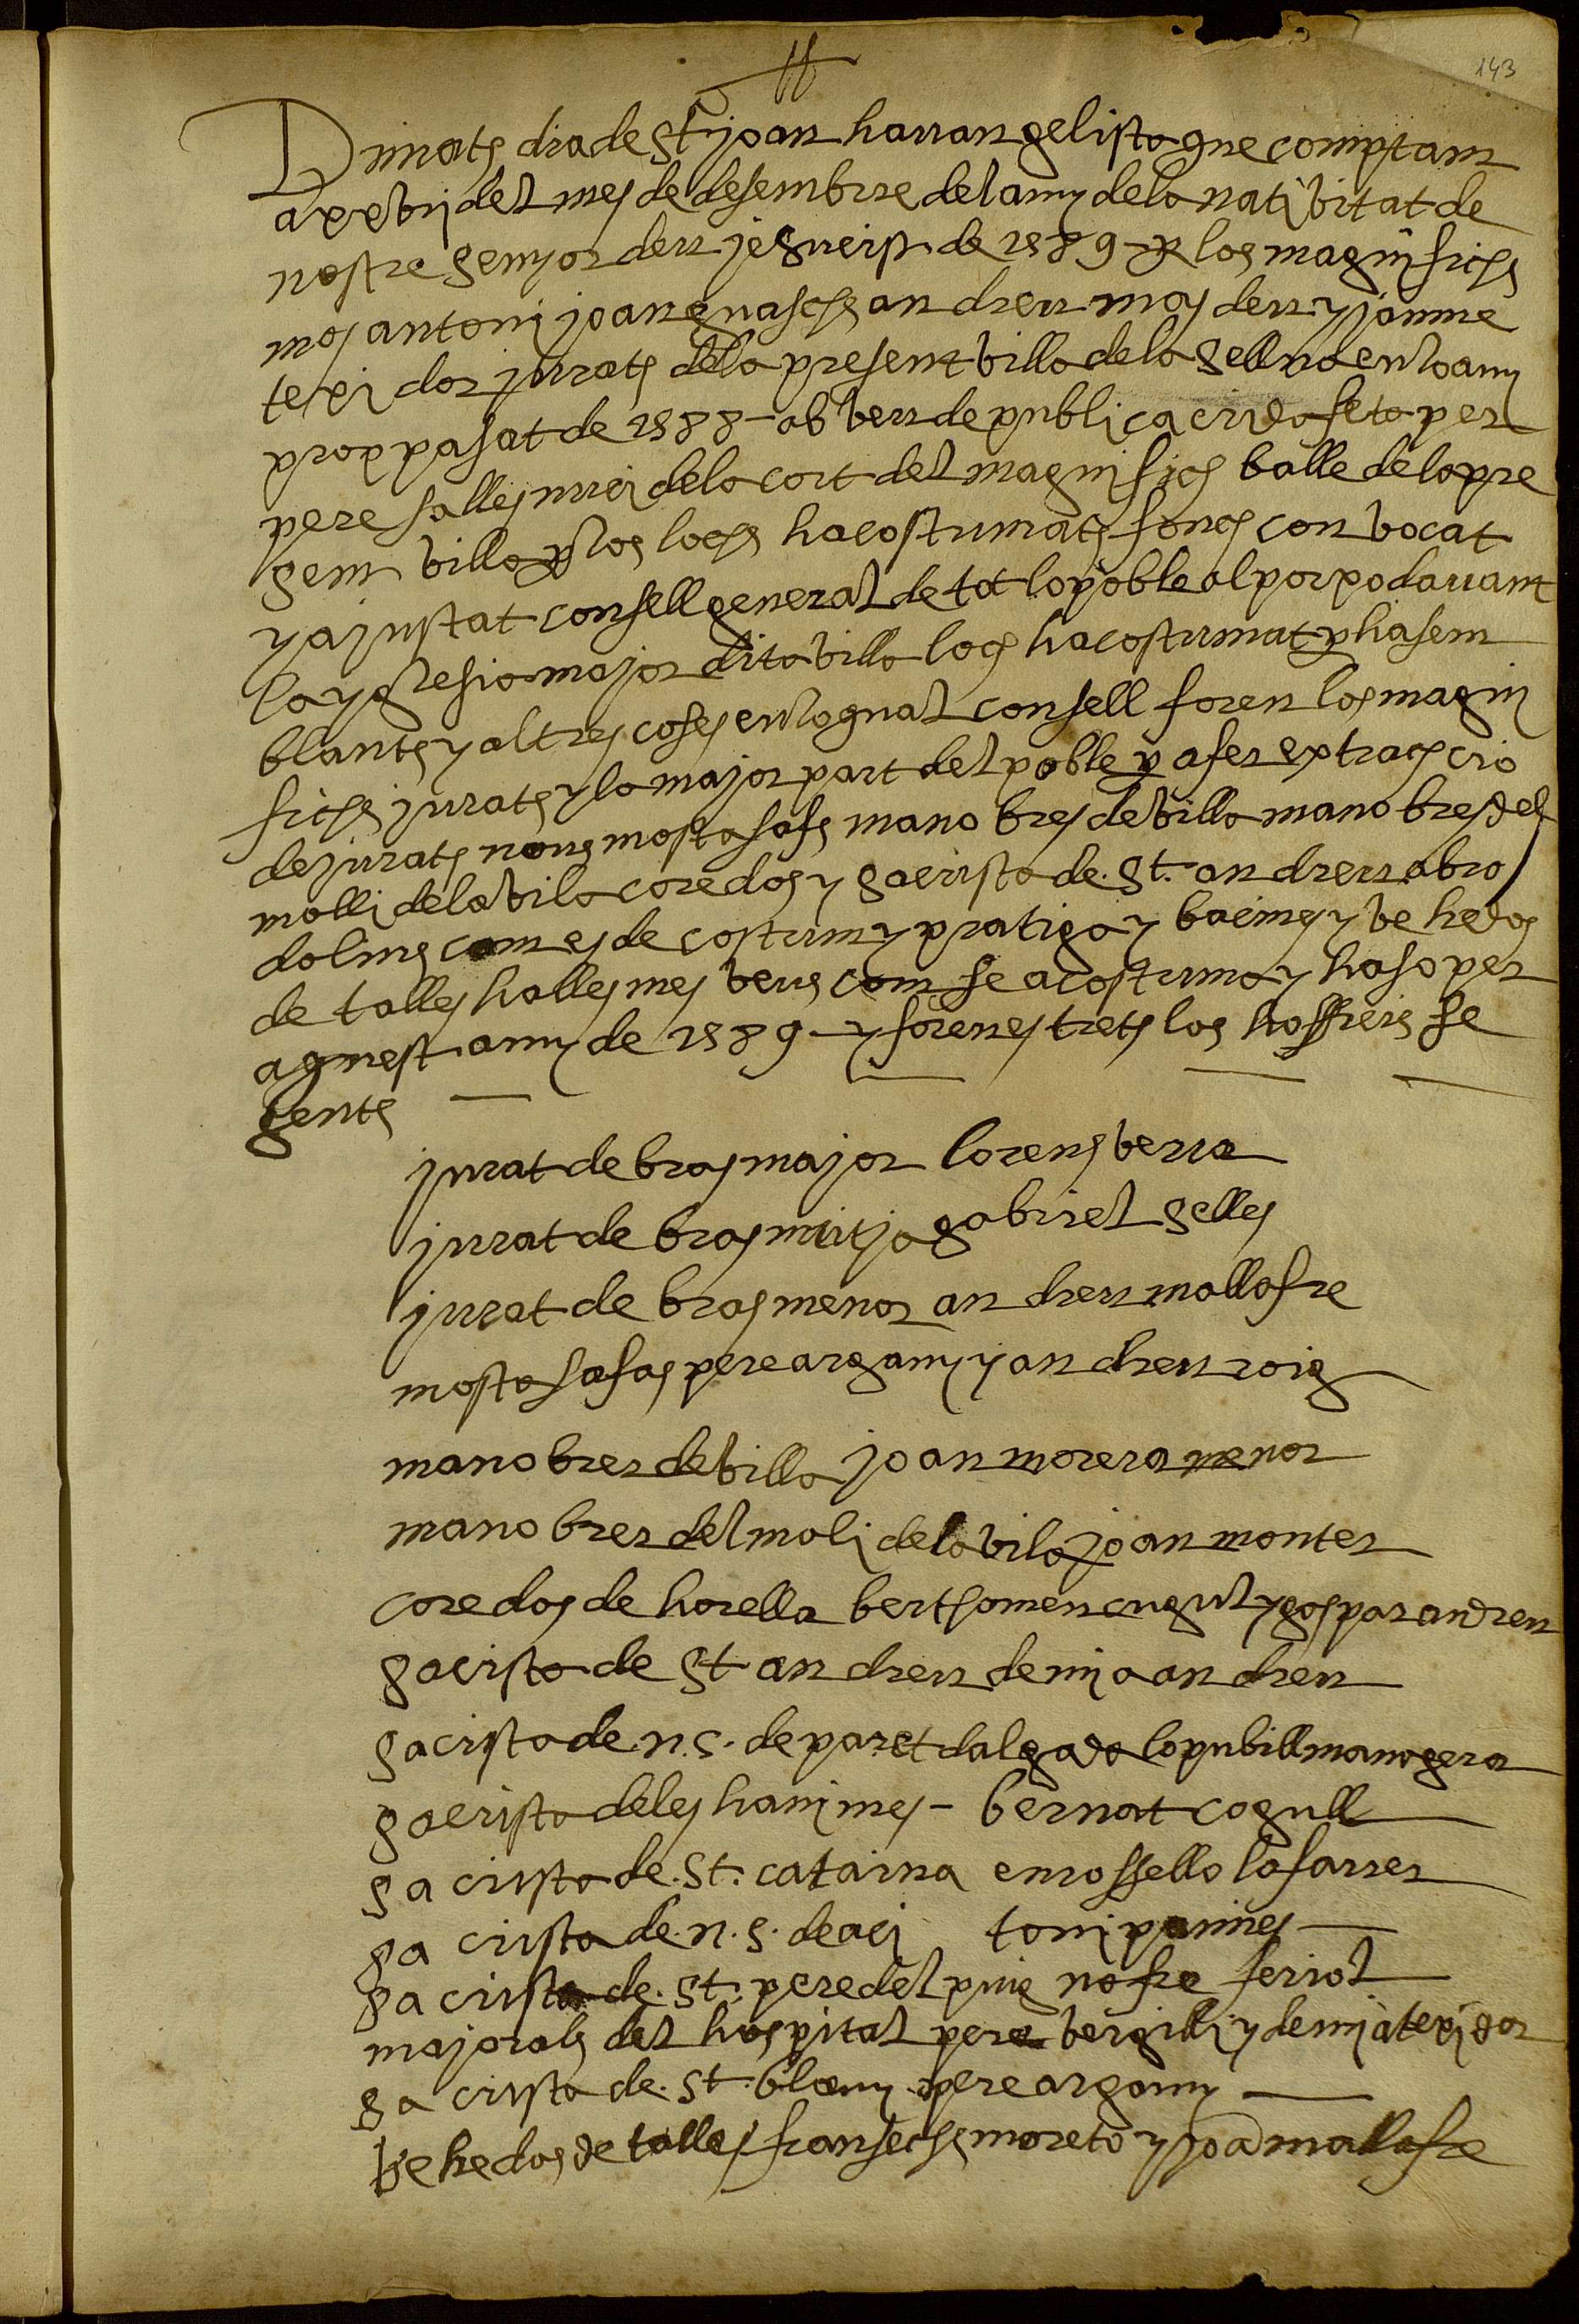 143
Dimats dia de St joan havangelista que comptam
a xxvii del mes de desembre del any de la nativitat de
nostre senyor deu jesucrist de 1589 per los magnifichs
mos antoni joan guaschs andreu mas deu y jaume
texidor jurats de la present villa de la sellva en lo any
prop pasat de 1588 – ab veu de publica crida feta per
pere salles nuci de la cort del magnifich balle de la pre
sem villa per los lochs hacostumats fonch convocat
y ajustat consell general de tot lo poble al porxo davant
la yglesia major dita villa loch hacostumat per hasem
blants y altres coses en lo qual consell foren los magni
fichs jurats y la major part del poble per a fer extrachcio
de jurats nous mostasafs manobres de villa manobres del
molli de la vila coredos y sacrista de. St. andreu ab ro
dolins com es de costum y pratiga y baimes y vehedos
de talles halles mes veus com se acostuma y hasa per
aquest any de 1589 – y foren estrets los hoffiris se
gents
jurat de bras major lorens verra
jurat de bras mitja gabriel selles
jurat de bras menor andreu mallafre
mostasafas pere argany y andreu roig
manobrer de villa joan morera menor
manobrer del moli de la vila joan monter
coredos de horella berthomeu cugul y gaspar andreu
sacrista de St andreu demia andreu
sacrista de. n. s. de paret dalgada lo pubill manogera
sacrista de les hanimes – bernat cogull
sacrista de. St. catarina en rossello lo farrer
sacrista de. n. s. de aci toni pames
sacrista de. St. pere del puig nofre ferriol
majorals del hospital pere vergilli y demia texidor
sacrista de. St. blany pere argany
vehedos de talles fransechs moreto y joan mallafre